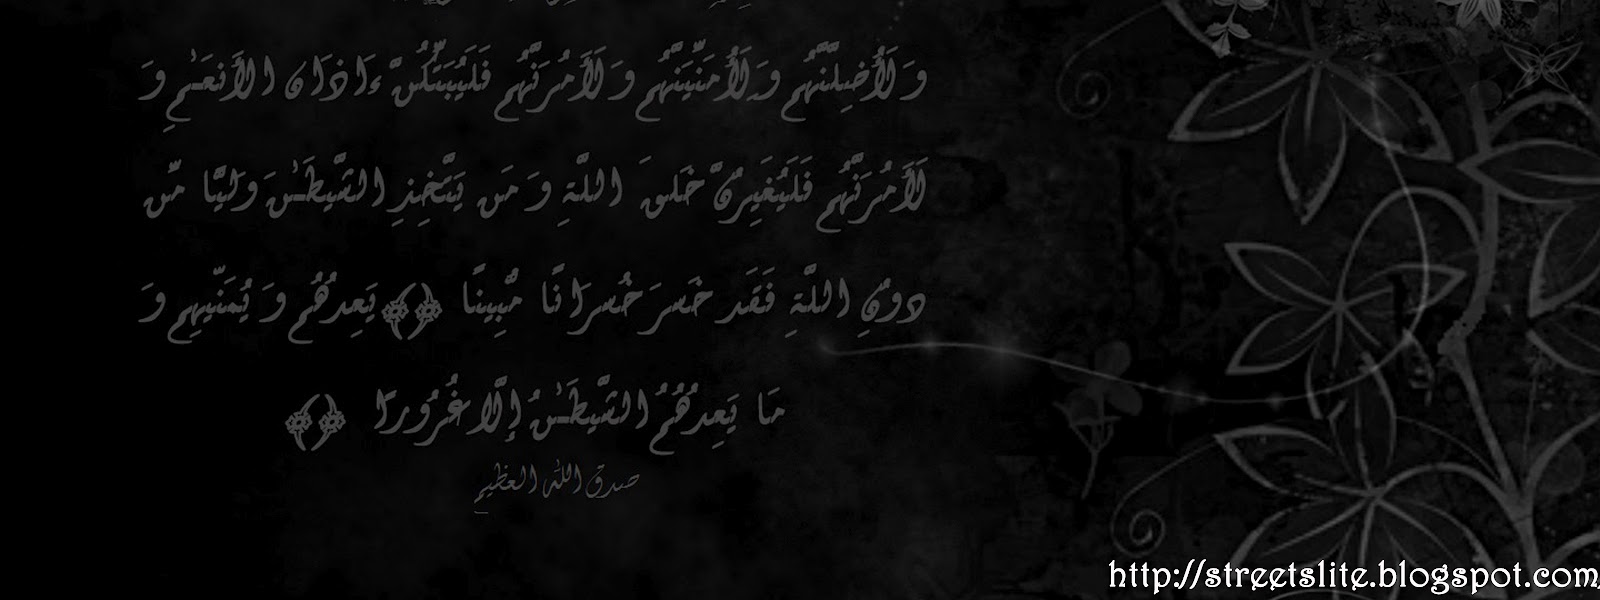 وَلَأُضِلَّنَّهُم وَلَأُمَنِّيَنَّهُم وَلَأَمُرَنَّهُم فَلَيُبَتِّكُنَّ ءَاذَانَ الأَنعَـٰمِ وَ
لَأَمُرَنَّهُم فَلَيُغَيِّرُنَّ خَلقَ اللَّهِ وَمَن يَتَّخِذِ الشَّيطَـٰنَ وَلِيًّا مِّن
دونِ اللَّهِ فَقَد خَسِرَ خُسرَانًا مُّبِينًا ﴿﴾ يَعِدُهُم وَيُمَنِّيهِم وَ
مَا يَعِدُهُمُ الشَّيطَـٰنُ إِلَّا غُرُورًا ﴿﴾
صدق الله العظيم
http://streetslite.blogspot.com/